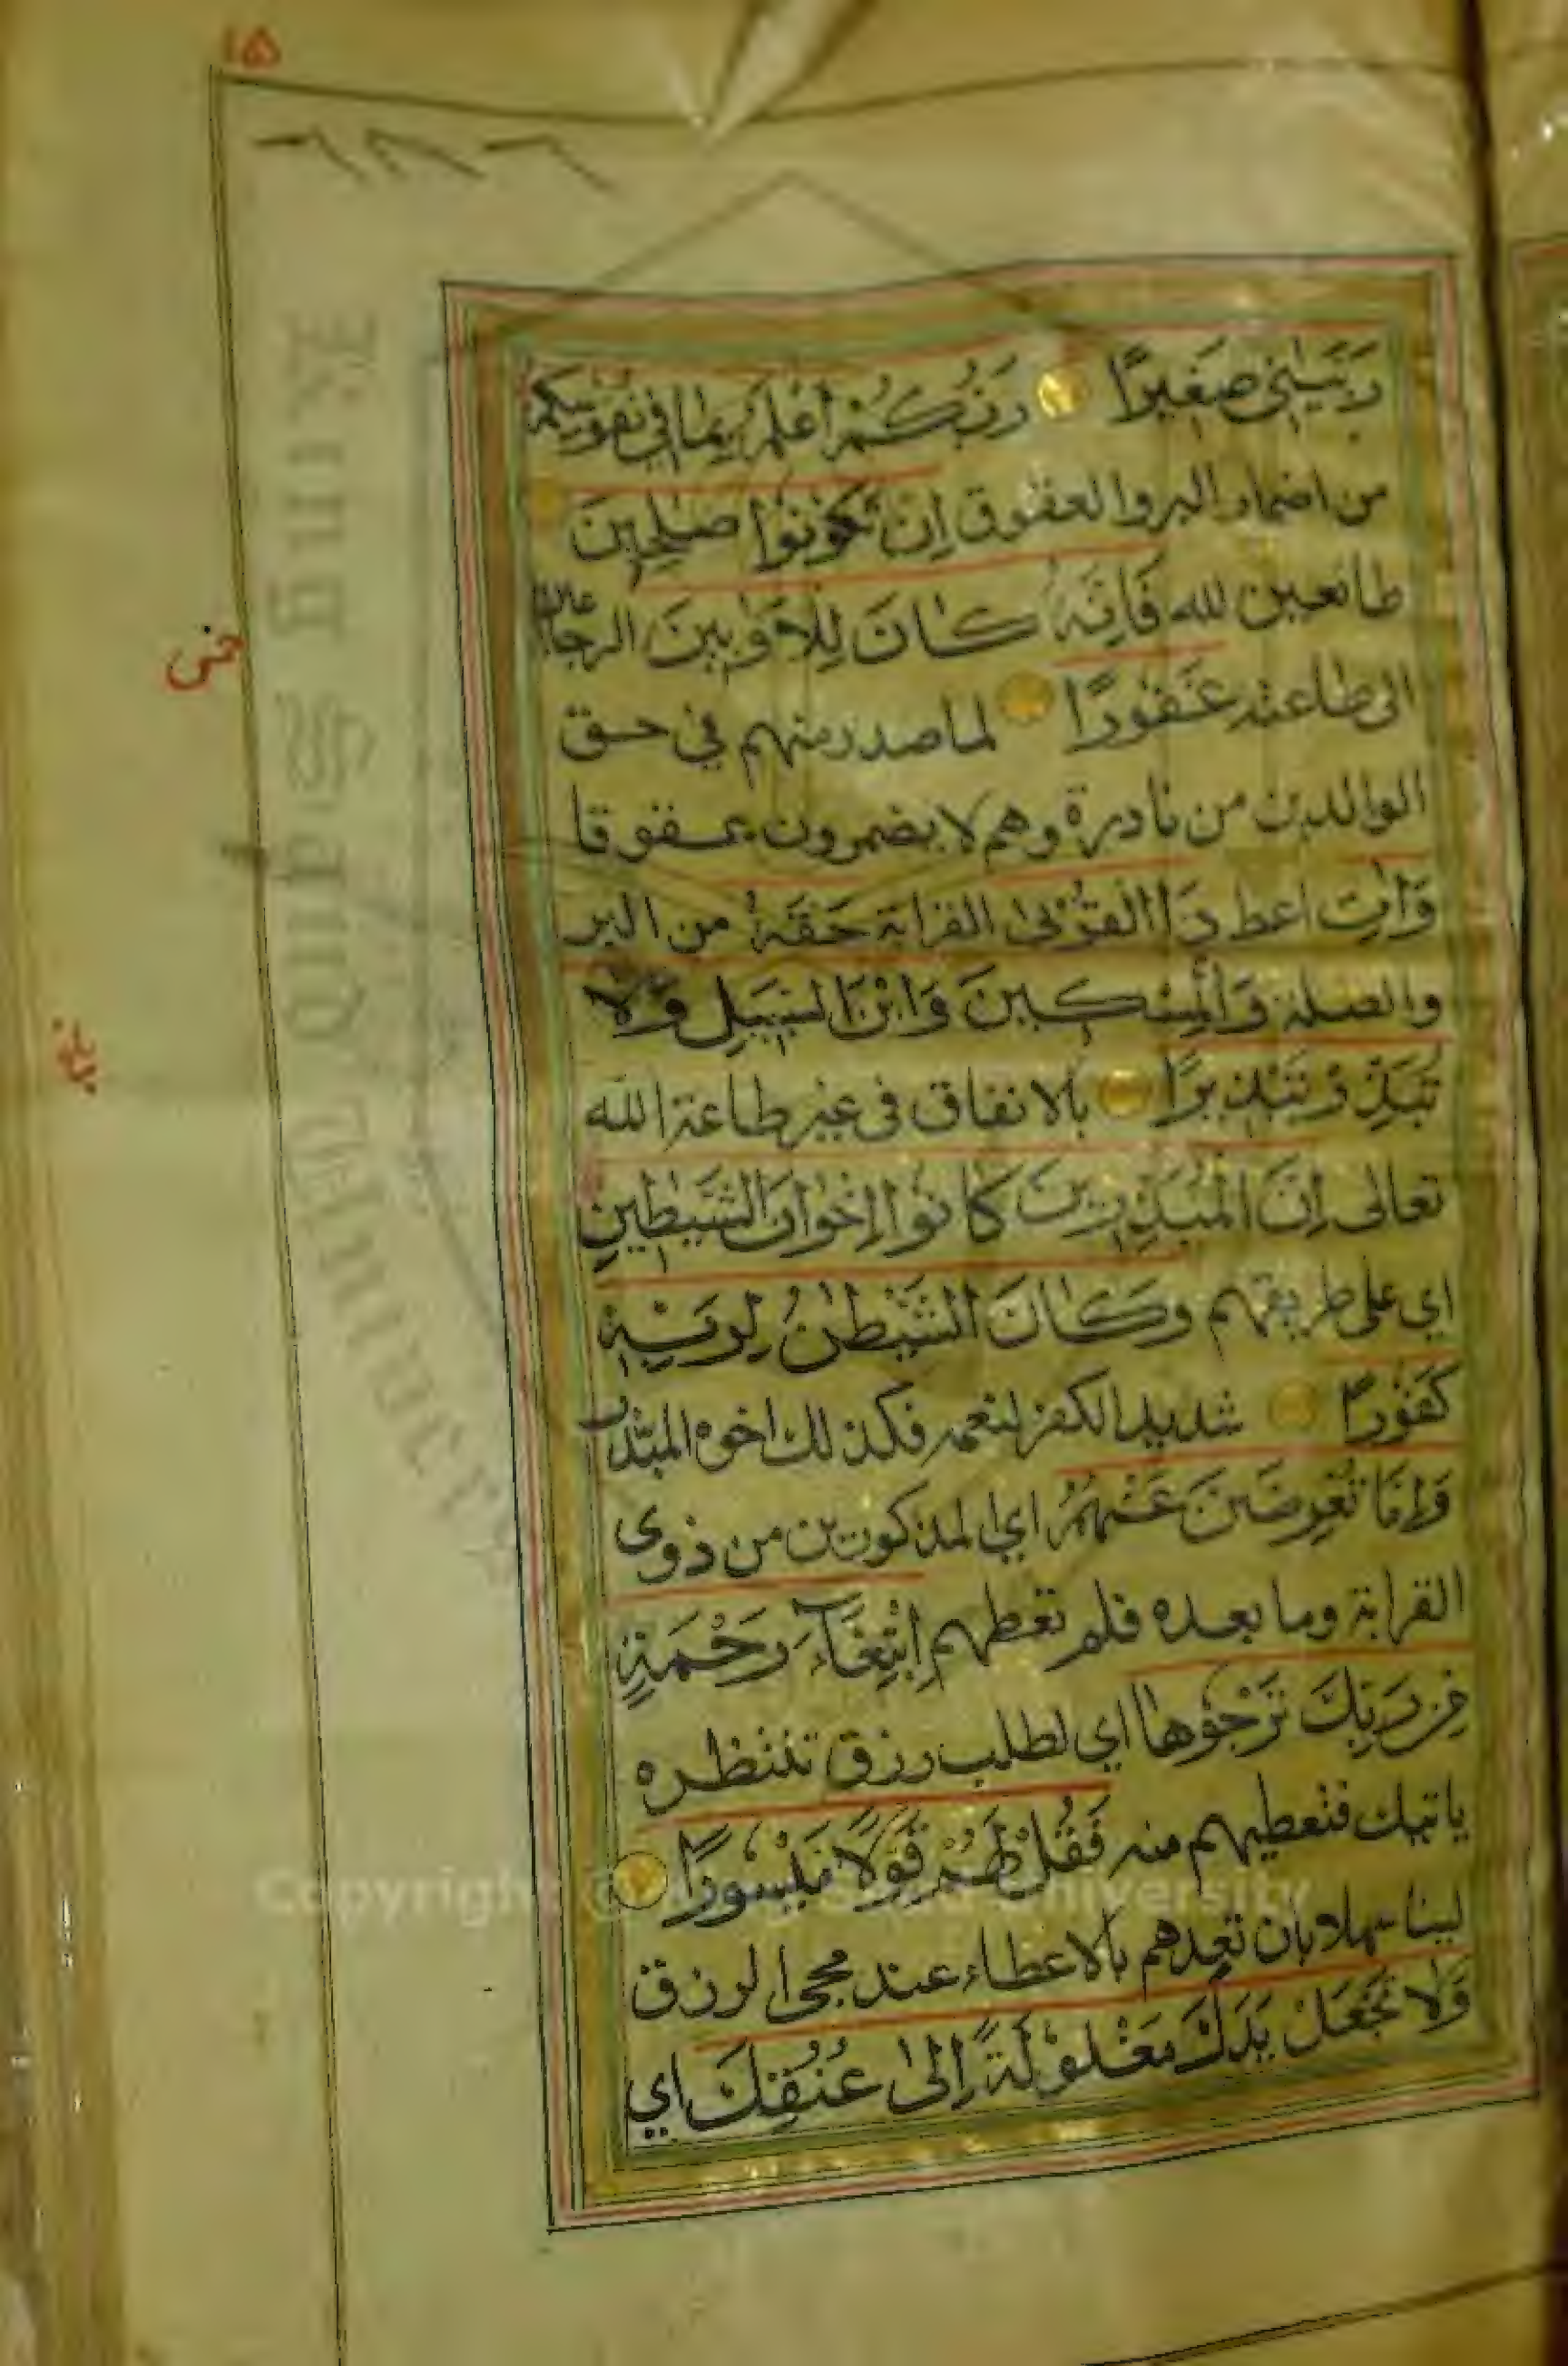 ١٥
رَبَّيٰنِي صَغِيرًا رَبُّكُمْ أَعْلَمُ بِمَا فِي نُفُوسِكُمْ
من اضمار البر والعقوق اِنْ تَكُونُوا صٰلِحِينَ
طائعين لله فَاِنَّهُ كَانَ لِلْاَوَّابِينَ الرجاعين
الى طاعته غَفُورًا لما صدر منهم في حق
الوالدين من نادرة وهم لا يضمرون عقوقا
وَاٰتِ اعط ذَا الْقُرْبٰى القرابة حَقَّهُ من البر
والصلة وَالْمِسْكِينَ وَابْنَ السَّبِيلِ وَلَا
تُبَذِّرْ تَبْذِيرًا بالانفاق في غير طاعة الله
تعالى اِنَّ الْمُبَذِّرِينَ كَانُوا اِخْوَانَ الشَّيٰطِينِ
اي على طريقتهم وَكَانَ الشَّيْطٰنُ لِرَبِّهِ
كَفُورًا شديد الكفر لنعمه فكذلك اخوه المبذر
وَاِمَّا تُعْرِضَنَّ عَنْهُمُ اي المذكورين من ذوي
القرابة وما بعده فلم تعطهم ابْتِغَآءَ رَحْمَةٍ
مِنْ رَبِّكَ تَرْجُوهَا اي لطلب رزق تنتظره
ياتيك فتعطيهم منه فَقُلْ لَهُمْ قَوْلًا مَيْسُورًا
لينا سهلا بان تعدهم بالاعطاء عند مجئ الرزق
وَلَا تَجْعَلْ يَدَكَ مَغْلُولَةً اِلٰى عُنُقِكَ اي
Copyright © King Saud University